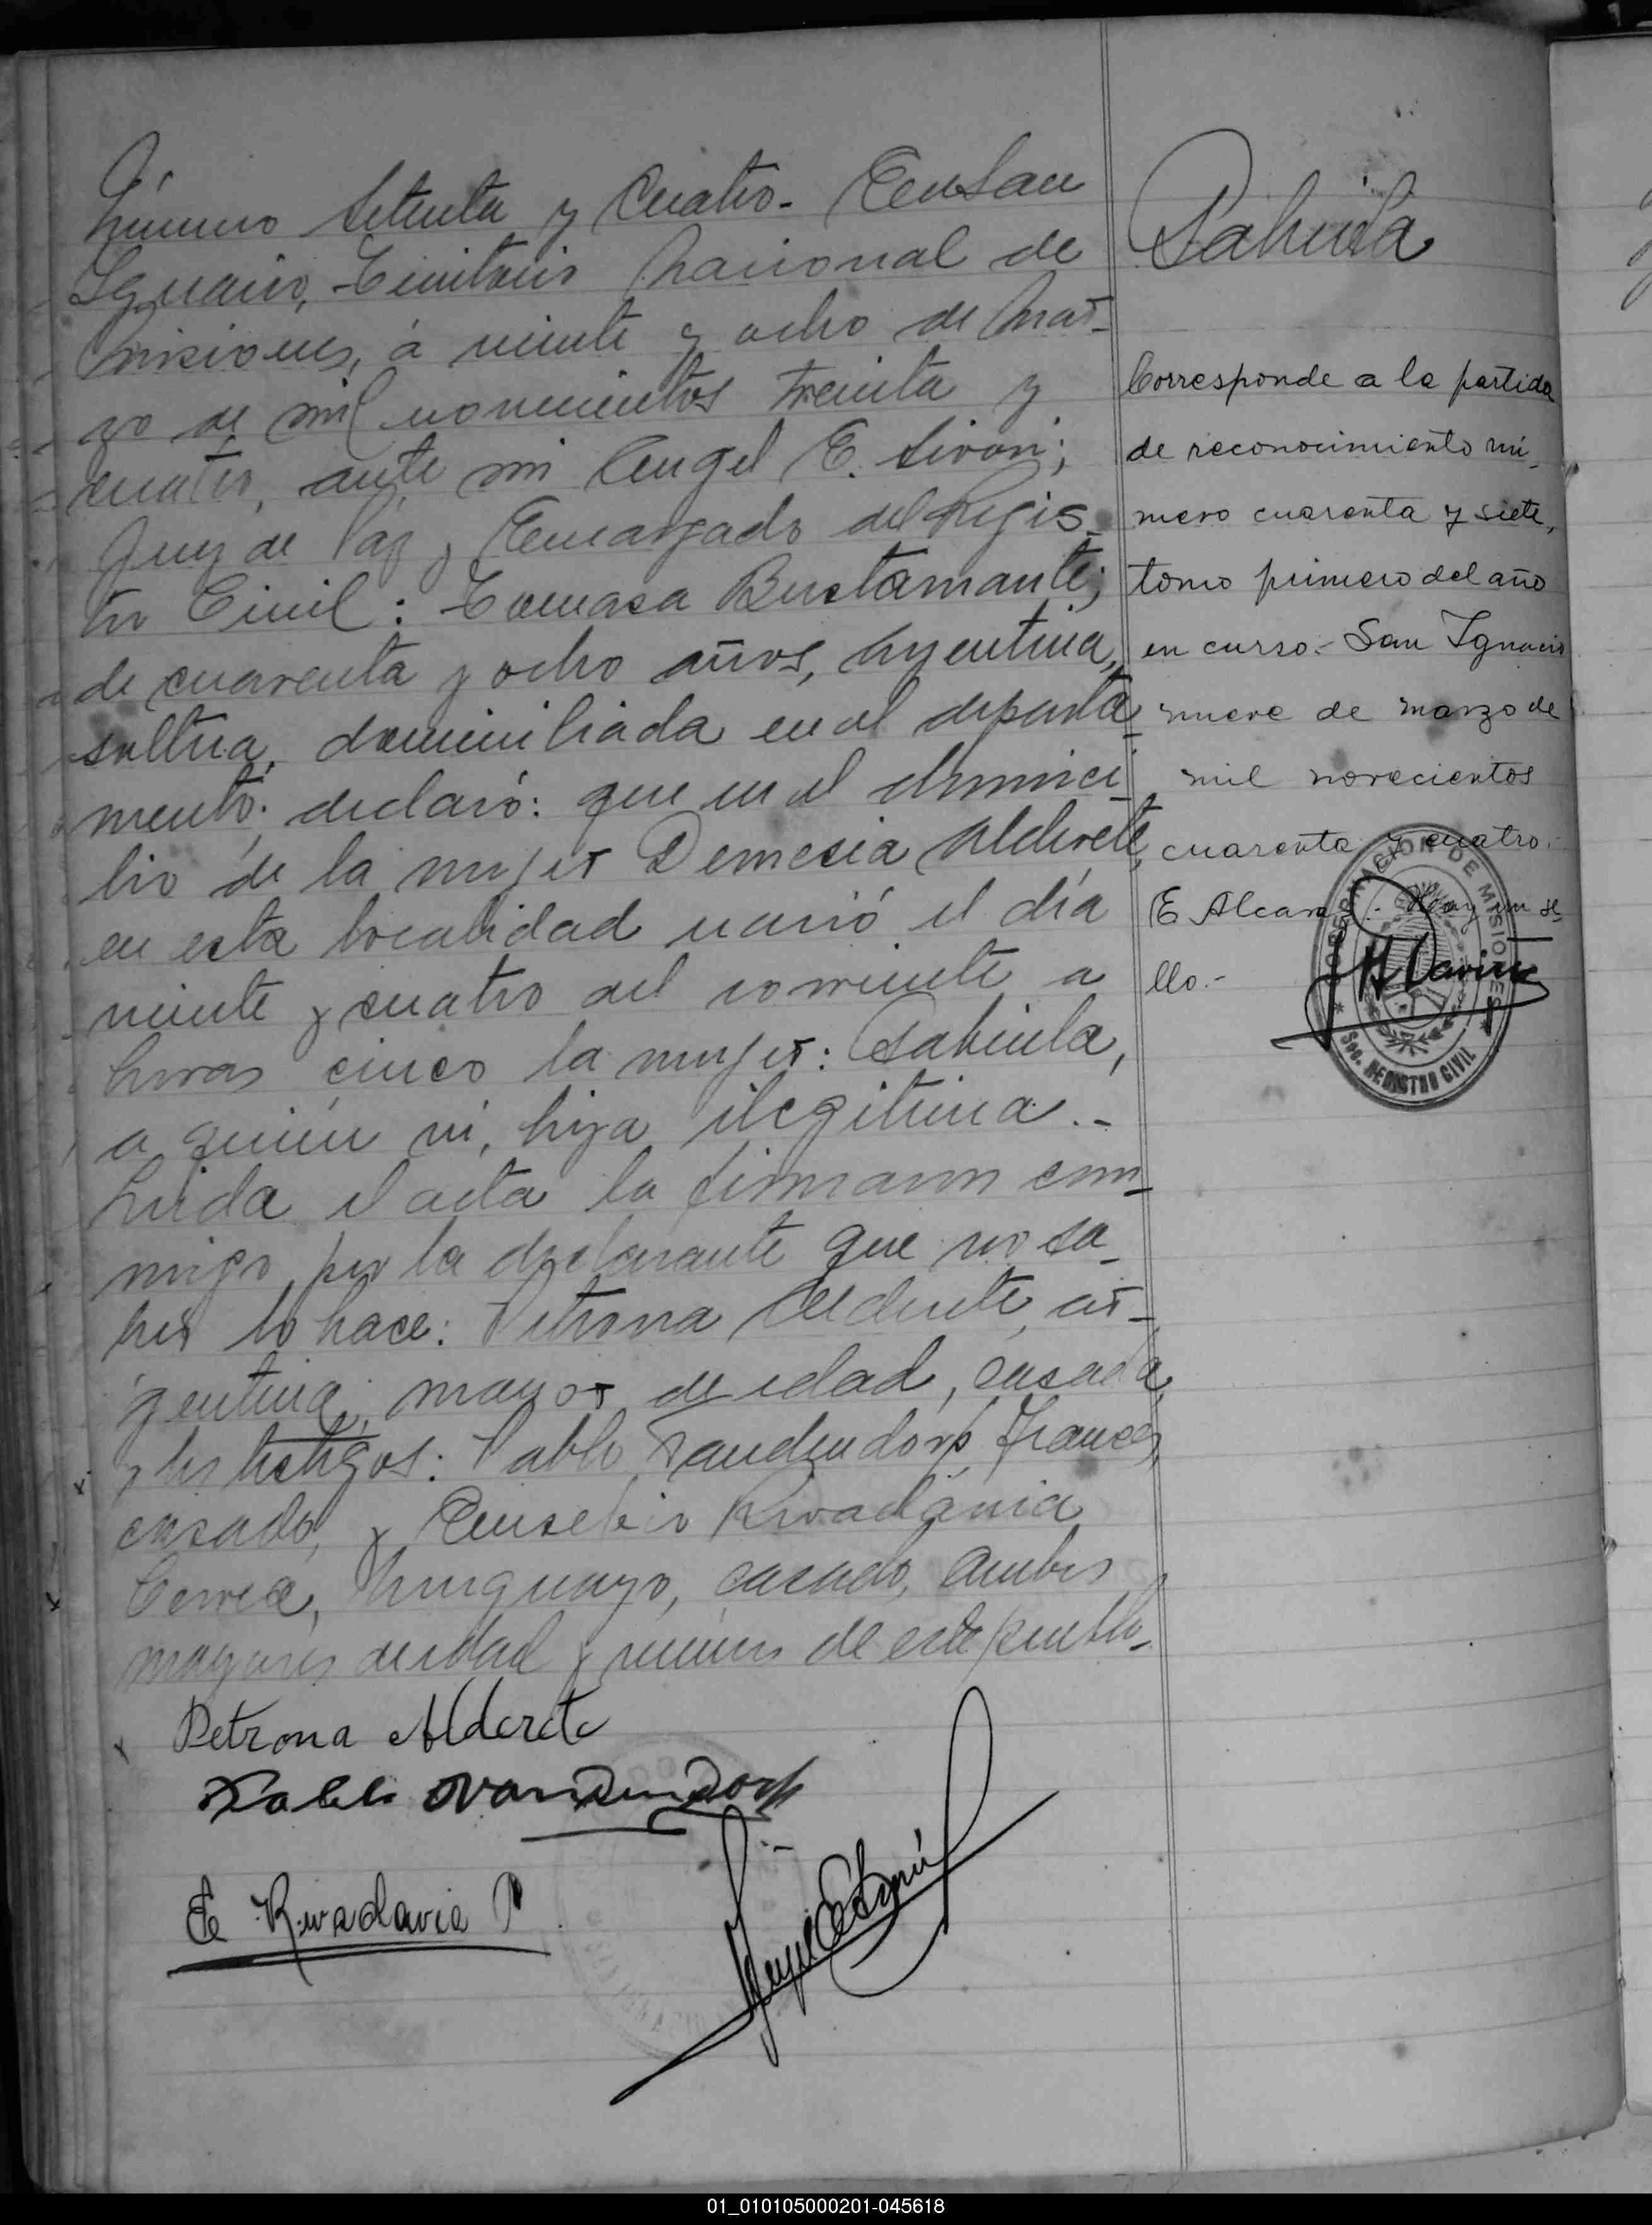 Número Setenta y Cuatro - En San
Ignacio, Territorio Nacional de
Misiones, á veinte y ocho de Mar-
zo de mil novecientos treinta y
cuatro, ante mi Angel E.
Juez de Paz y Encargado del Regis-
tro Civil: Tomasa Bustamante;
de cuarenta y ocho años, Argentina,
soltera, domiciliada en el departa-
mento; declaró: que en el domici-
lio de la mujer Demesia Alderete,
en esta localidad nació el día
veinte y cuatro del corriente a
horas cinco la mujer:
a quién ví, hija ilegitima.-
Leida el acta la firmaron con-
migo, por la declarante que no sa-
ber lo hace: Petrona Alderete, ar-
gentina, mayor de edad, casada,
y los testigos: Pablo Vandendorp, Frances,
casado, y Eusebio Rivadavia
Correa, Uruguayo, casado, ambos
mayores de edad y vecinos de este pueblo-
Petrona Alderete
Pablo Vandendorp
E Rivadavia
Corresponde a la partida
de reconocimiento nú-
mero cuarenta y siete,
tomo primero del año
en curso.- San Ignacio
nueve de marzo de
mil novecientos
cuarenta y cuatro.-
E Alcaraz.- Hay un se
llo.-
GOBERNACION DE MISIONES
Sec. REGISTRO CIVIL
01_010105000201-045618